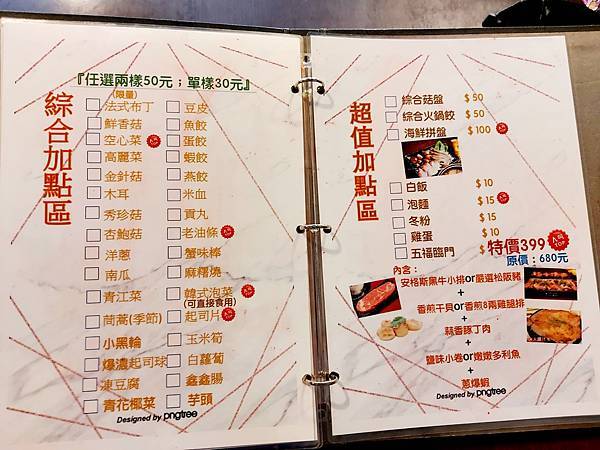 『任選兩樣50元；單樣30元』
綜合加點區
(限量)
法式布丁
鮮香菇
空心菜
高麗菜
金針菇
木耳
秀珍菇
杏鮑菇
洋蔥
南瓜
青江菜
茼蒿(季節)
小黑輪
爆濃起司球
凍豆腐
青花椰菜
豆皮
魚餃
蛋餃
蝦餃
燕餃
米血
貢丸
老油條
蟹味棒
麻糬燒
韓式泡菜
(可直接食用)
起司片
玉米筍
白蘿蔔
鑫鑫腸
芋頭
Designed by pngtree
超值加點區
綜合菇盤 $ 50
綜合火鍋餃 $ 50
海鮮拼盤 $ 100
白飯 $ 10
泡麵 $ 15
冬粉 $ 15
雞蛋 $ 10
五福臨門 特價399
原價：680元
內含：
安格斯黑牛小排or嚴選松阪豬
+
香煎干貝or香煎8兩雞腿排
+
蒜香豚丁肉
+
鹽味小卷or嫩嫩多利魚
+
蔥爆蝦
Designed by pngtree